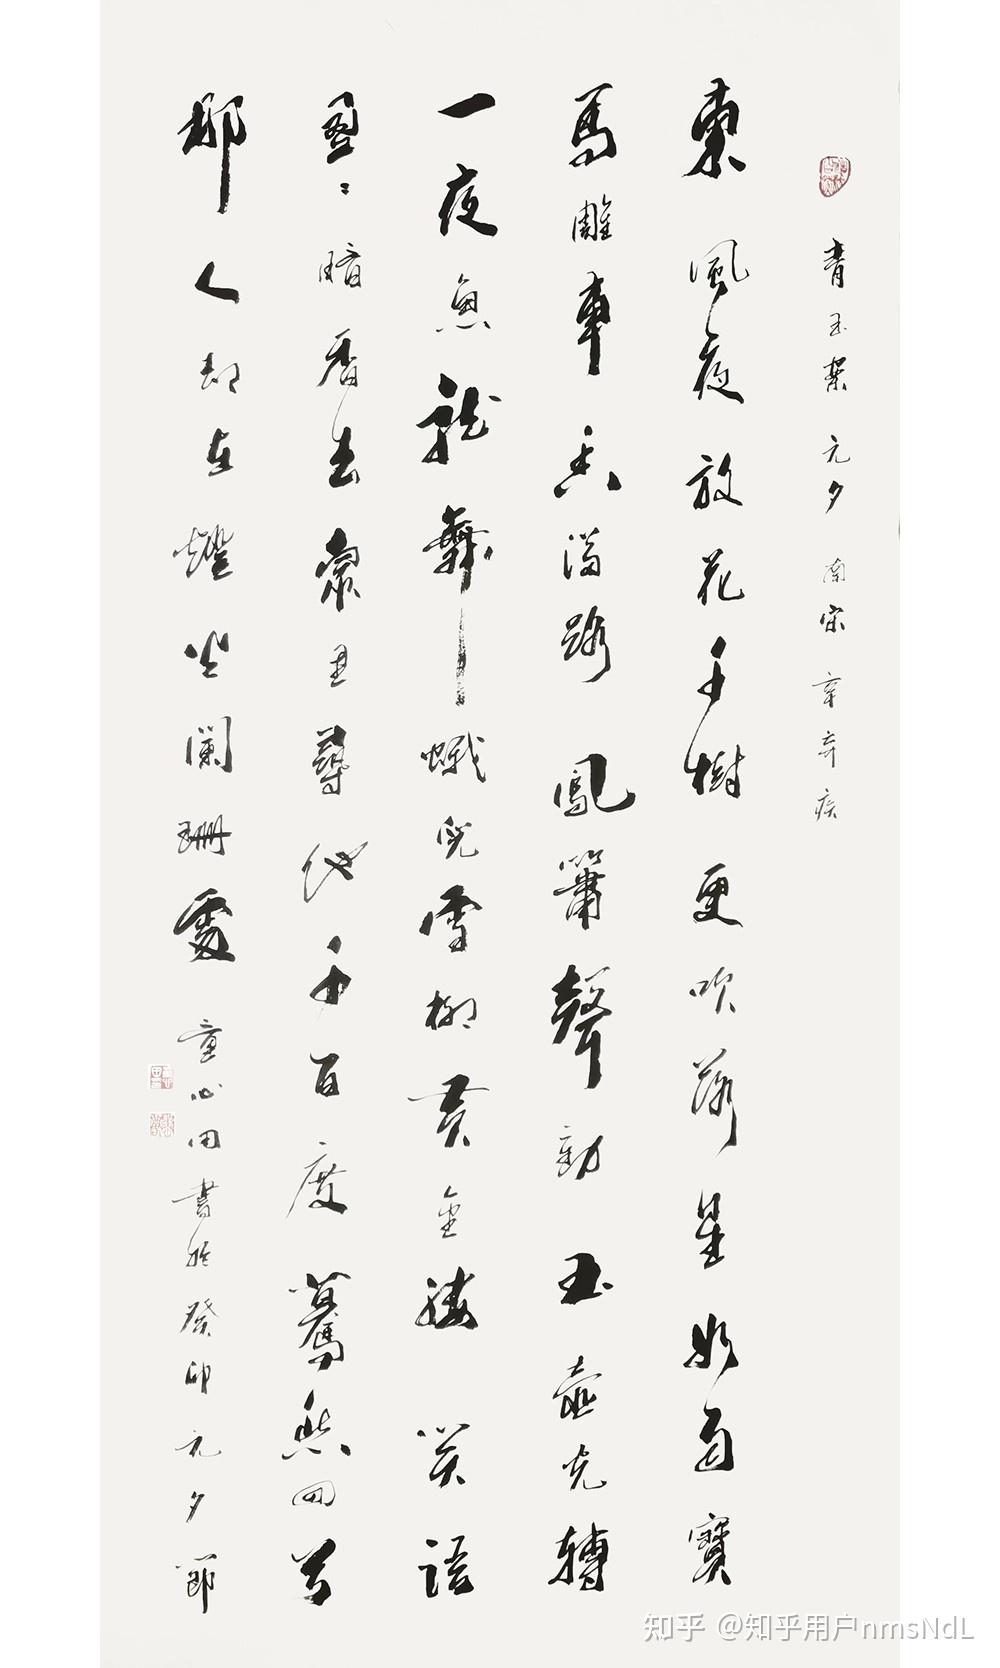 青玉案 元夕 南宋 辛弃疾
東風夜放花千樹 更吹落星如雨 寶
馬雕車香滿路 鳳簫聲動 玉壺光轉
一夜魚龍舞 蛾兒雪柳黃金縷 笑語
盈〻暗香去 衆里尋他千百度 驀然回首
那人却在燈火闌珊處 童心田書於癸卯元夕節
知乎 @知乎用户nmsNdL